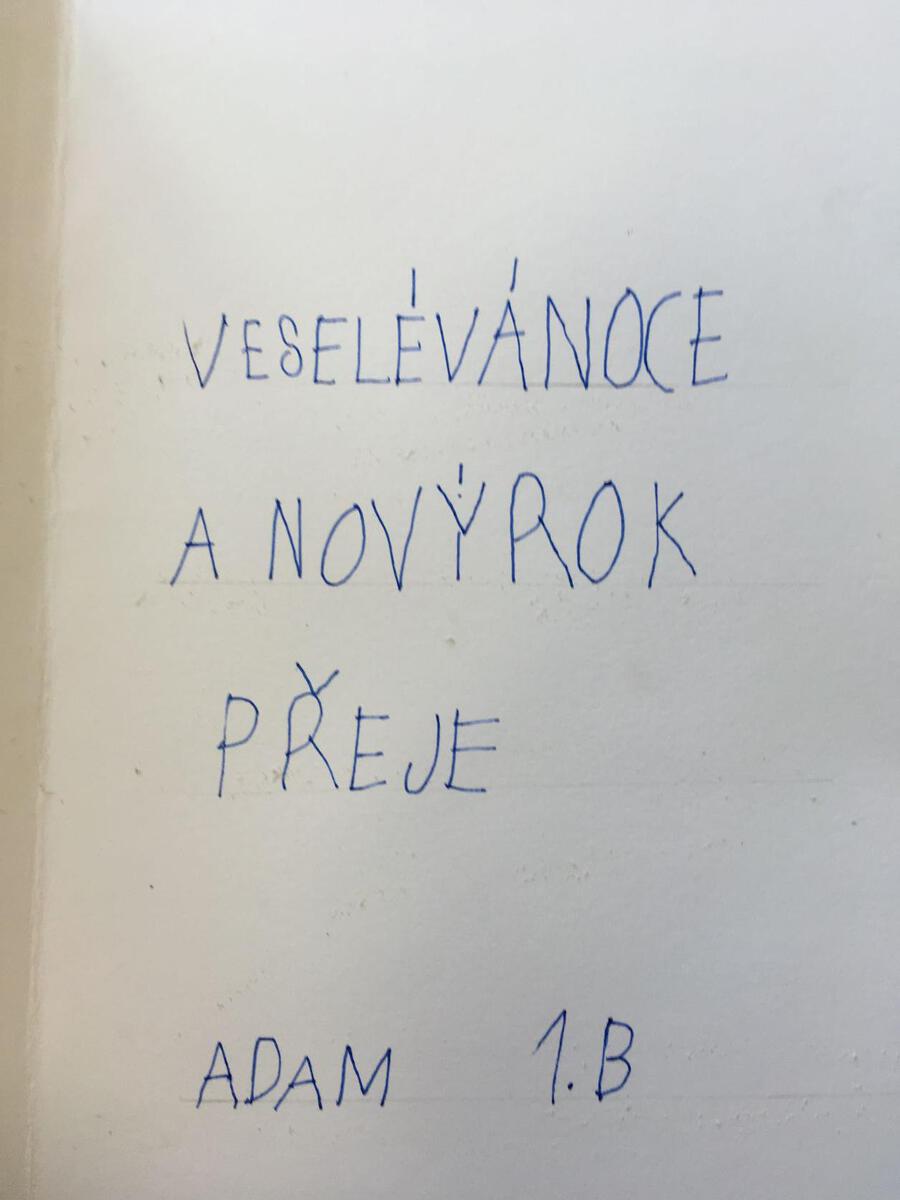 VESELÉ VÁNOCE
A NOVÝ ROK
PŘEJE
ADAM 1.B